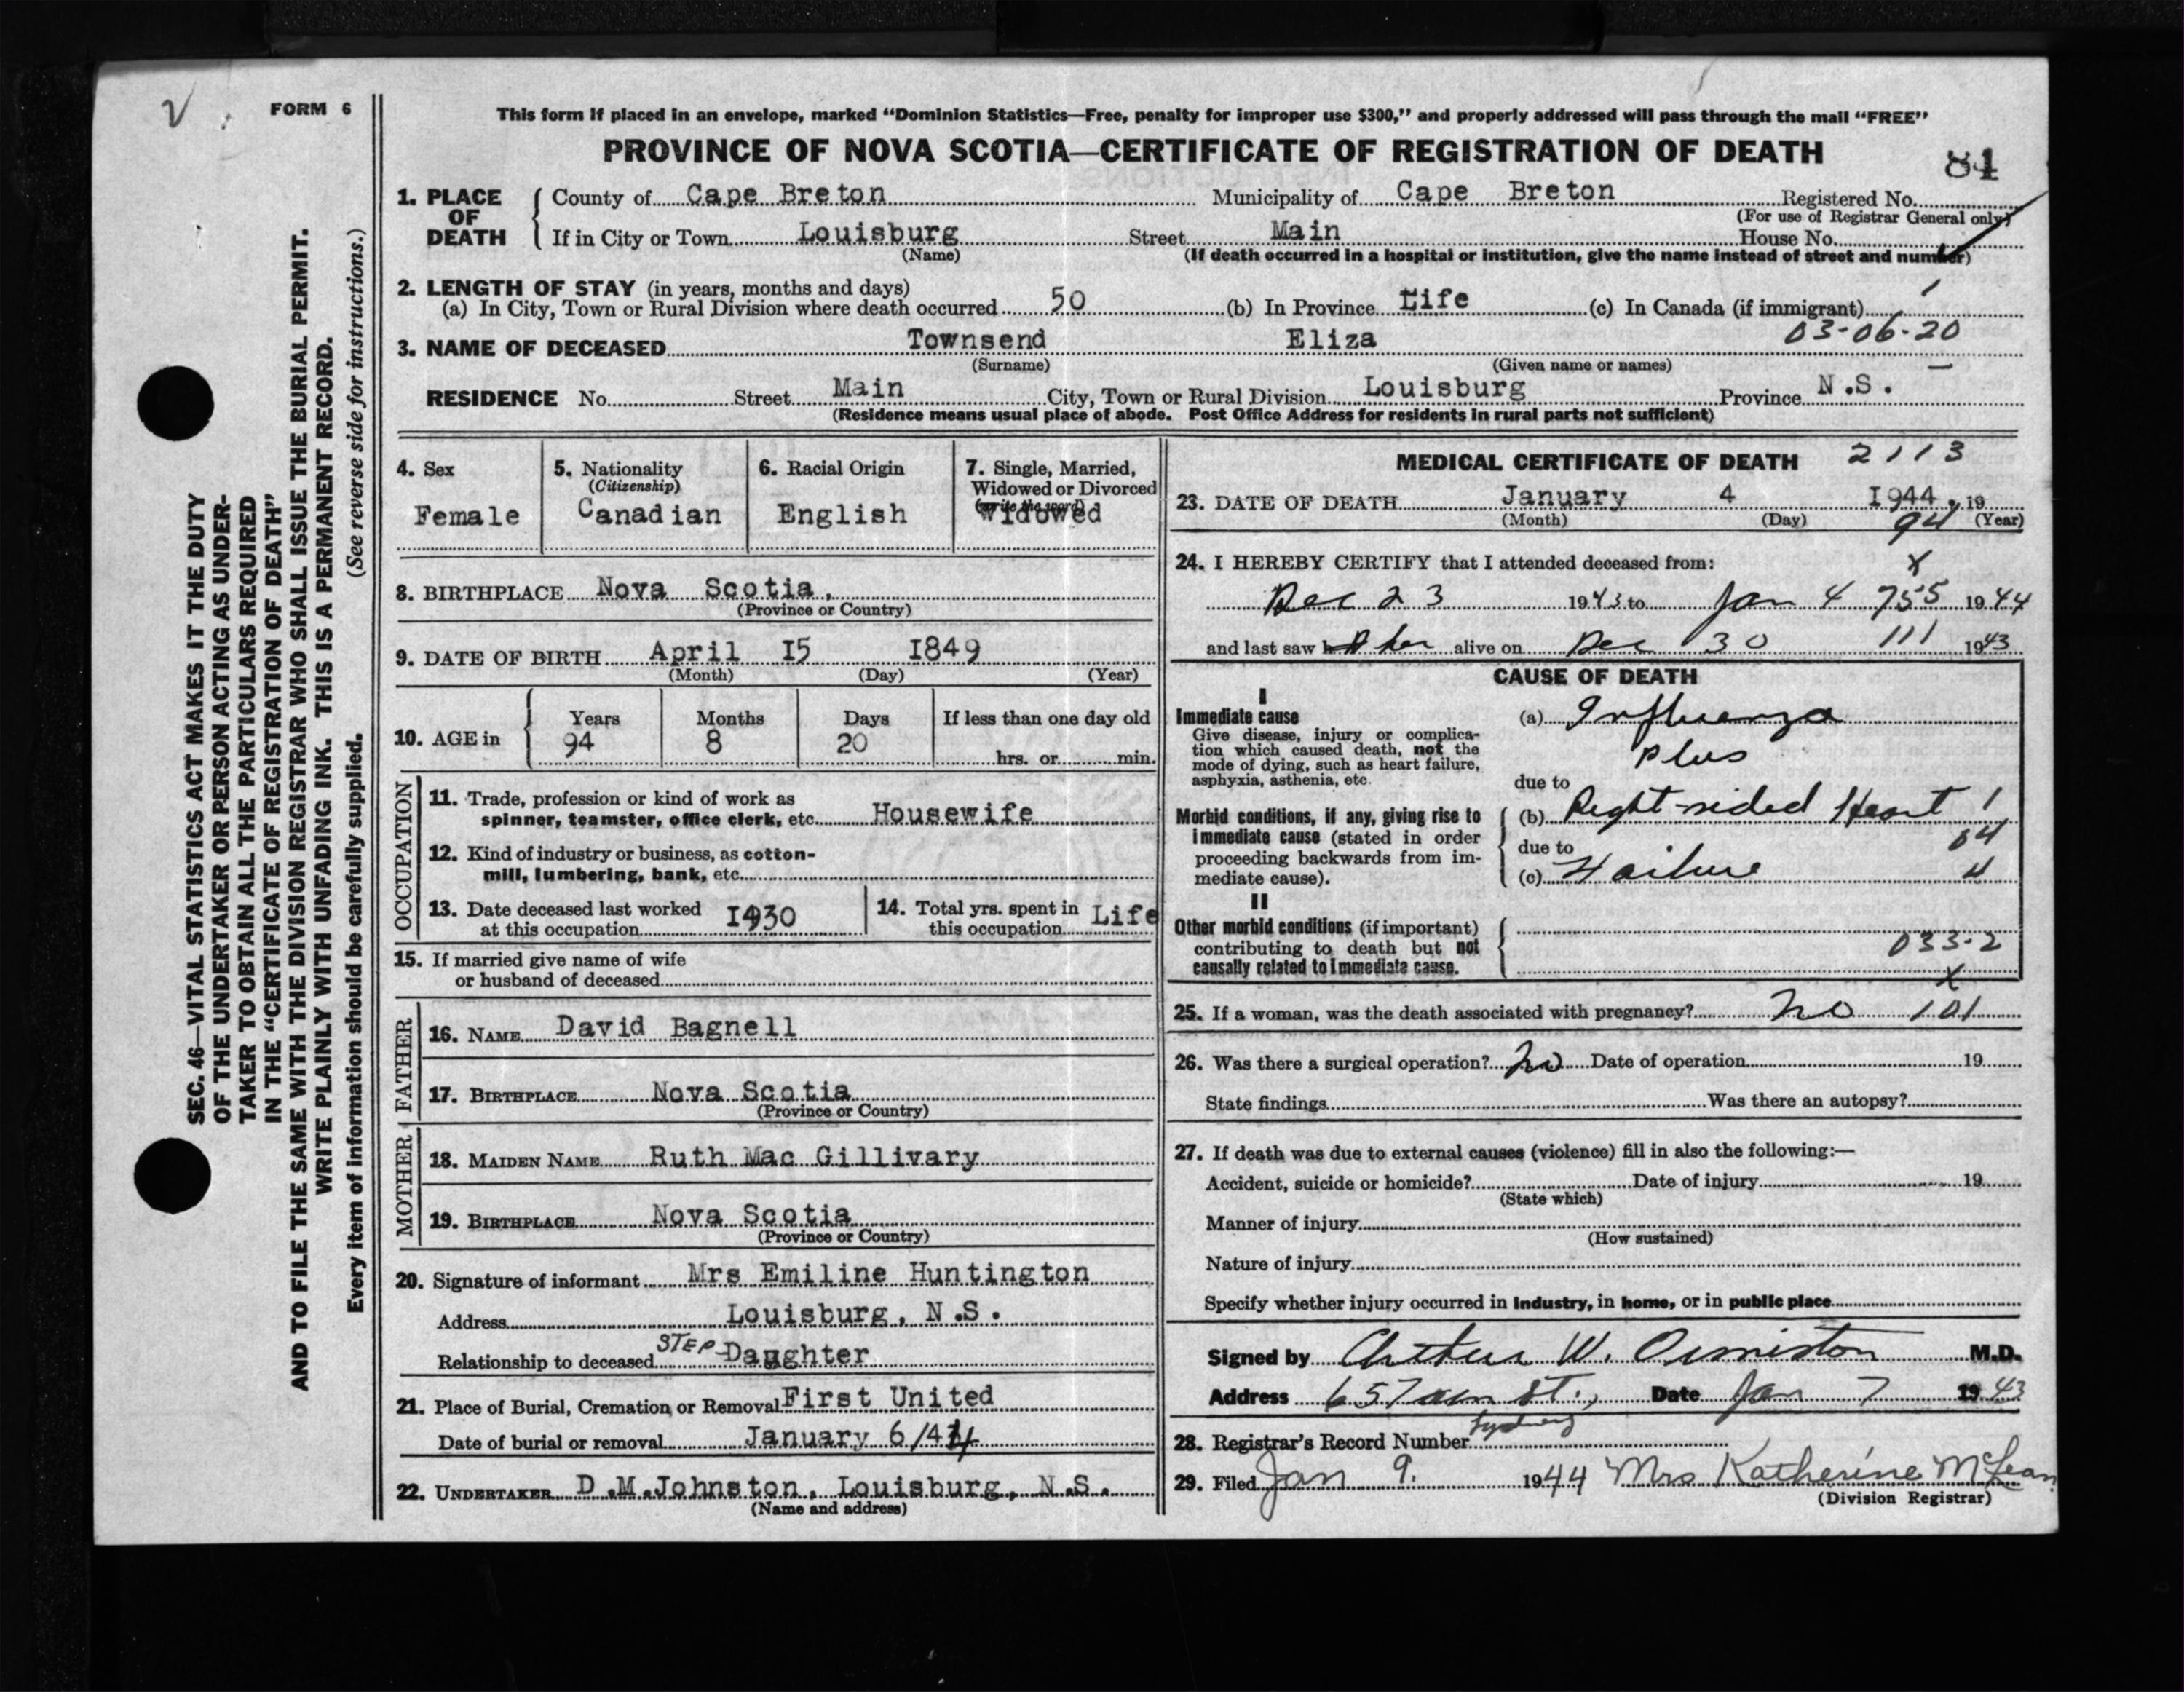 V
FORM 6
This form if placed in an envelope, marked "Dominion Statistics—Free, penalty for improper use $300," and properly addressed will pass through the mail "FREE"
PROVINCE OF NOVA SCOTIA—CERTIFICATE OF REGISTRATION OF DEATH
84
1. PLACE OF DEATH
County of Cape Breton Municipality of Cape Breton Registered No.
(For use of Registrar General only)
If in City or Town Louisburg Street Main House No.
(Name) (If death occurred in a hospital or institution, give the name instead of street and number)
2. LENGTH OF STAY (in years, months and days)
(a) In City, Town or Rural Division where death occurred 50 (b) In Province Life (c) In Canada (if immigrant)
03-06-20
3. NAME OF DECEASED Townsend Eliza
(Surname) (Given name or names)
RESIDENCE No. Street Main City, Town or Rural Division Louisburg Province N.S.
(Residence means usual place of abode. Post Office Address for residents in rural parts not sufficient)
4. Sex
Female
5. Nationality
(Citizenship)
Canadian
6. Racial Origin
English
7. Single, Married,
Widowed or Divorced
(write the word)
Widowed
8. BIRTHPLACE Nova Scotia,
(Province or Country)
9. DATE OF BIRTH April I5 I849
(Month) (Day) (Year)
10. AGE in
Years Months Days If less than one day old
94 8 20
hrs. or min.
OCCUPATION
11. Trade, profession or kind of work as
spinner, teamster, office clerk, etc. Housewife
12. Kind of industry or business, as cotton-
mill, lumbering, bank, etc.
13. Date deceased last worked
at this occupation I930
14. Total yrs. spent in
this occupation Life
15. If married give name of wife
or husband of deceased
FATHER
16. NAME David Bagnell
17. BIRTHPLACE Nova Scotia
(Province or Country)
MOTHER
18. MAIDEN NAME Ruth Mac Gillivary
19. BIRTHPLACE Nova Scotia
(Province or Country)
20. Signature of informant Mrs Emiline Huntington
Address Louisburg, N.S.
Relationship to deceased STEP-Daughter
21. Place of Burial, Cremation or Removal First United
Date of burial or removal January 6/44
22. UNDERTAKER D.M.Johnston, Louisburg, N.S.
(Name and address)
MEDICAL CERTIFICATE OF DEATH 2113
23. DATE OF DEATH January 4 I944, 19
(Month) (Day) (Year)
94
24. I HEREBY CERTIFY that I attended deceased from:
X
Dec 23 1943 to Jan 4 755 1944
and last saw her alive on Dec 30 111 1943
CAUSE OF DEATH
I
Immediate cause
Give disease, injury or complica-
tion which caused death, not the
mode of dying, such as heart failure,
asphyxia, asthenia, etc.
(a) Influenza
Plus
due to
Morbid conditions, if any, giving rise to
immediate cause (stated in order
proceeding backwards from im-
mediate cause).
(b) Right-sided Heart 1
due to 04
(c) Failure 4
II
Other morbid conditions (if important)
contributing to death but not
causally related to immediate cause.
033-2
X
25. If a woman, was the death associated with pregnancy? no 101
26. Was there a surgical operation? no Date of operation 19
State findings Was there an autopsy?
27. If death was due to external causes (violence) fill in also the following:—
Accident, suicide or homicide? Date of injury 19
(State which)
Manner of injury
(How sustained)
Nature of injury
Specify whether injury occurred in industry, in home, or in public place
Signed by Arthur W. Ormiston M.D.
Address 65 St., Date Jan 7 1943
Sydney
28. Registrar's Record Number
29. Filed Jan 9. 1944 Mrs Katherine McLean
(Division Registrar)
SEC. 46—VITAL STATISTICS ACT MAKES IT THE DUTY
OF THE UNDERTAKER OR PERSON ACTING AS UNDER-
TAKER TO OBTAIN ALL THE PARTICULARS REQUIRED
IN THE "CERTIFICATE OF REGISTRATION OF DEATH"
AND TO FILE THE SAME WITH THE DIVISION REGISTRAR WHO SHALL ISSUE THE BURIAL PERMIT.
WRITE PLAINLY WITH UNFADING INK. THIS IS A PERMANENT RECORD.
Every item of information should be carefully supplied. (See reverse side for instructions.)